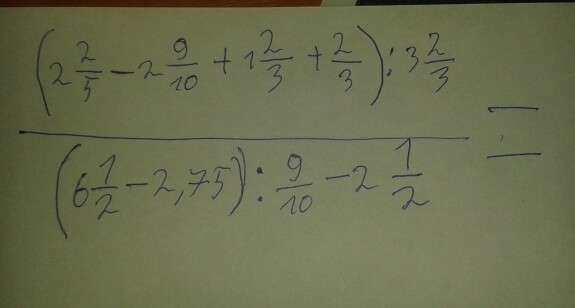 (2 2/5 − 2 9/10 + 1 2/3 + 2/3) : 3 2/3
(6 1/2 − 2,75) : 9/10 − 2 1/2
=